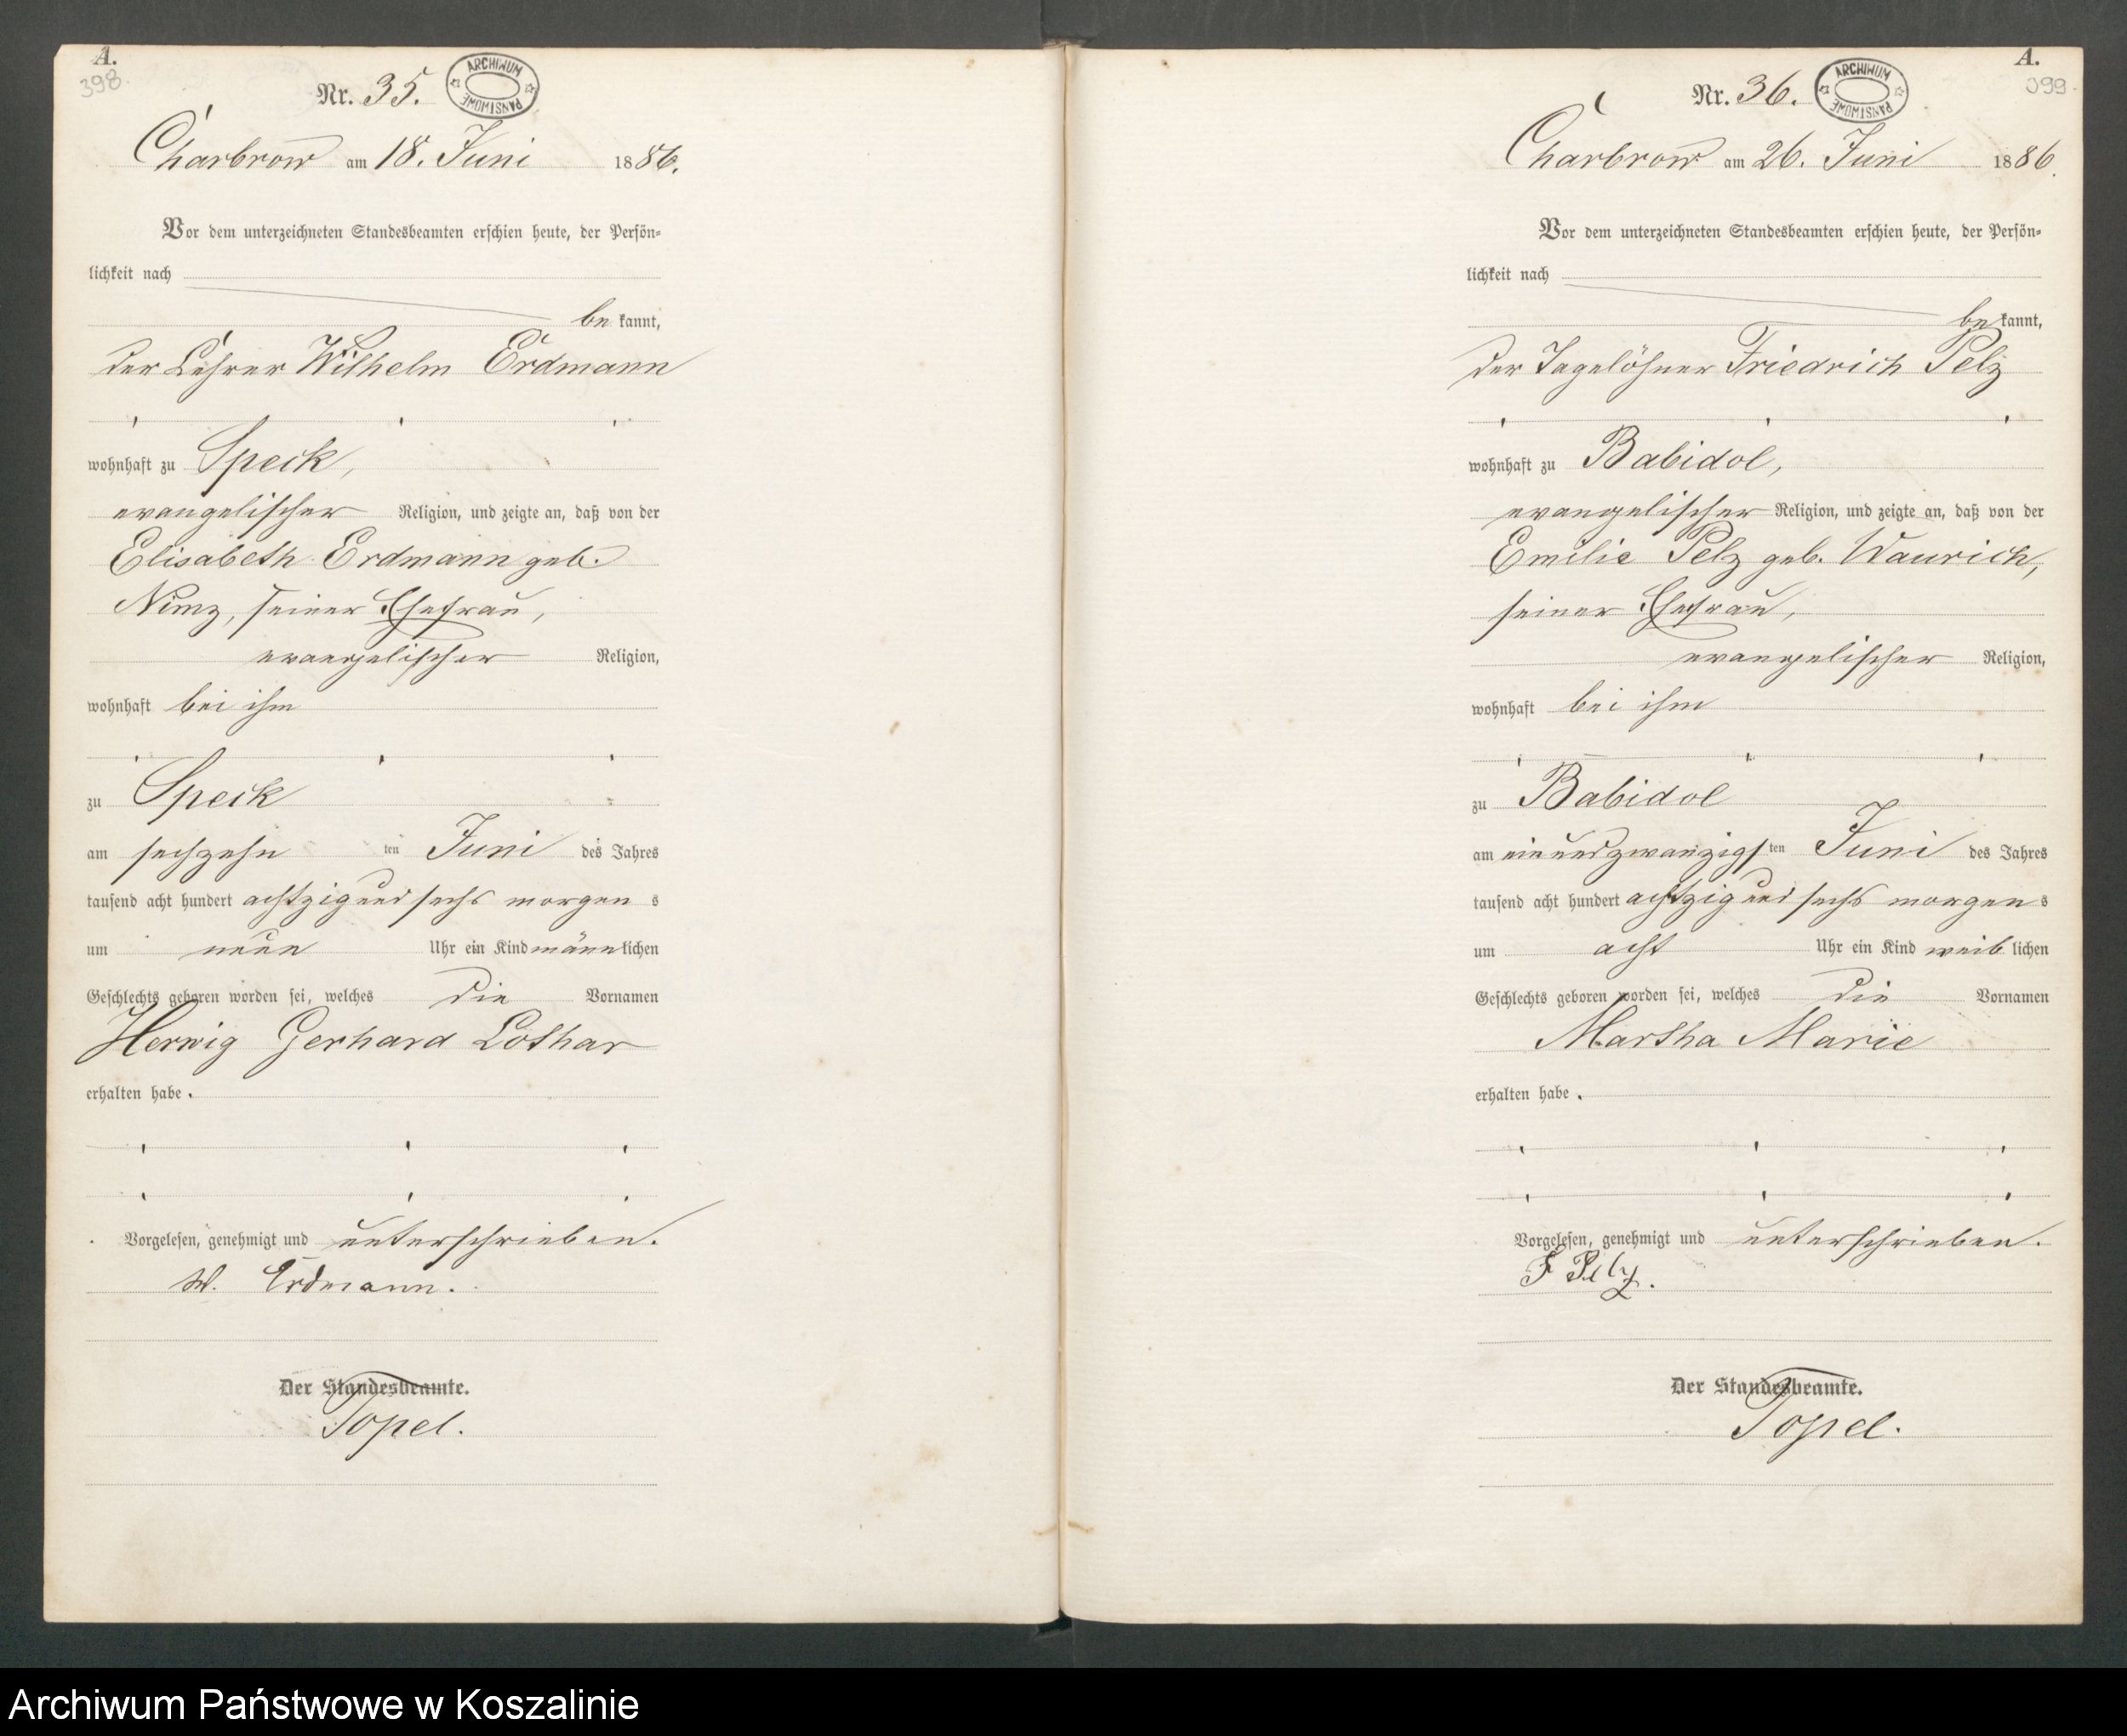 A.
398.
Nr. 35.
ARCHIWUM PAŃSTWOWE
Charbrow am 18. Juni 1886.
Vor dem unterzeichneten Standesbeamten erschien heute, der Persön-
lichkeit nach
be kannt,
der Lehrer Wilhelm Erdmann
wohnhaft zu Speck,
evangelischer Religion, und zeigte an, daß von der
Elisabeth Erdmann geb.
Nimz, seiner Ehefrau,
evangelischer Religion,
wohnhaft bei ihm
zu Speck
am sechzehn ten Juni des Jahres
tausend acht hundert achtzig und sechs morgen s
um neun Uhr ein Kind männlichen
Geschlechts geboren worden sei, welches die Vornamen
Herwig Gerhard Lothar
erhalten habe.
Vorgelesen, genehmigt und unterschrieben.
W. Erdmann.
Der Standesbeamte.
Topel.
A.
399.
Nr. 36.
ARCHIWUM PAŃSTWOWE
Charbrow am 26. Juni 1886.
Vor dem unterzeichneten Standesbeamten erschien heute, der Persön-
lichkeit nach
be kannt,
der Tagelöhner Friedrich Pelz
wohnhaft zu Babidol,
evangelischer Religion, und zeigte an, daß von der
Emilie Pelz geb. Waurich,
seiner Ehefrau,
evangelischer Religion,
wohnhaft bei ihm
zu Babidol
am einundzwanzigsten Juni des Jahres
tausend acht hundert achtzig und sechs morgen s
um acht Uhr ein Kind weib lichen
Geschlechts geboren worden sei, welches die Vornamen
Martha Marie
erhalten habe.
Vorgelesen, genehmigt und unterschrieben.
F Pelz.
Der Standesbeamte.
Topel.
Archiwum Państwowe w Koszalinie